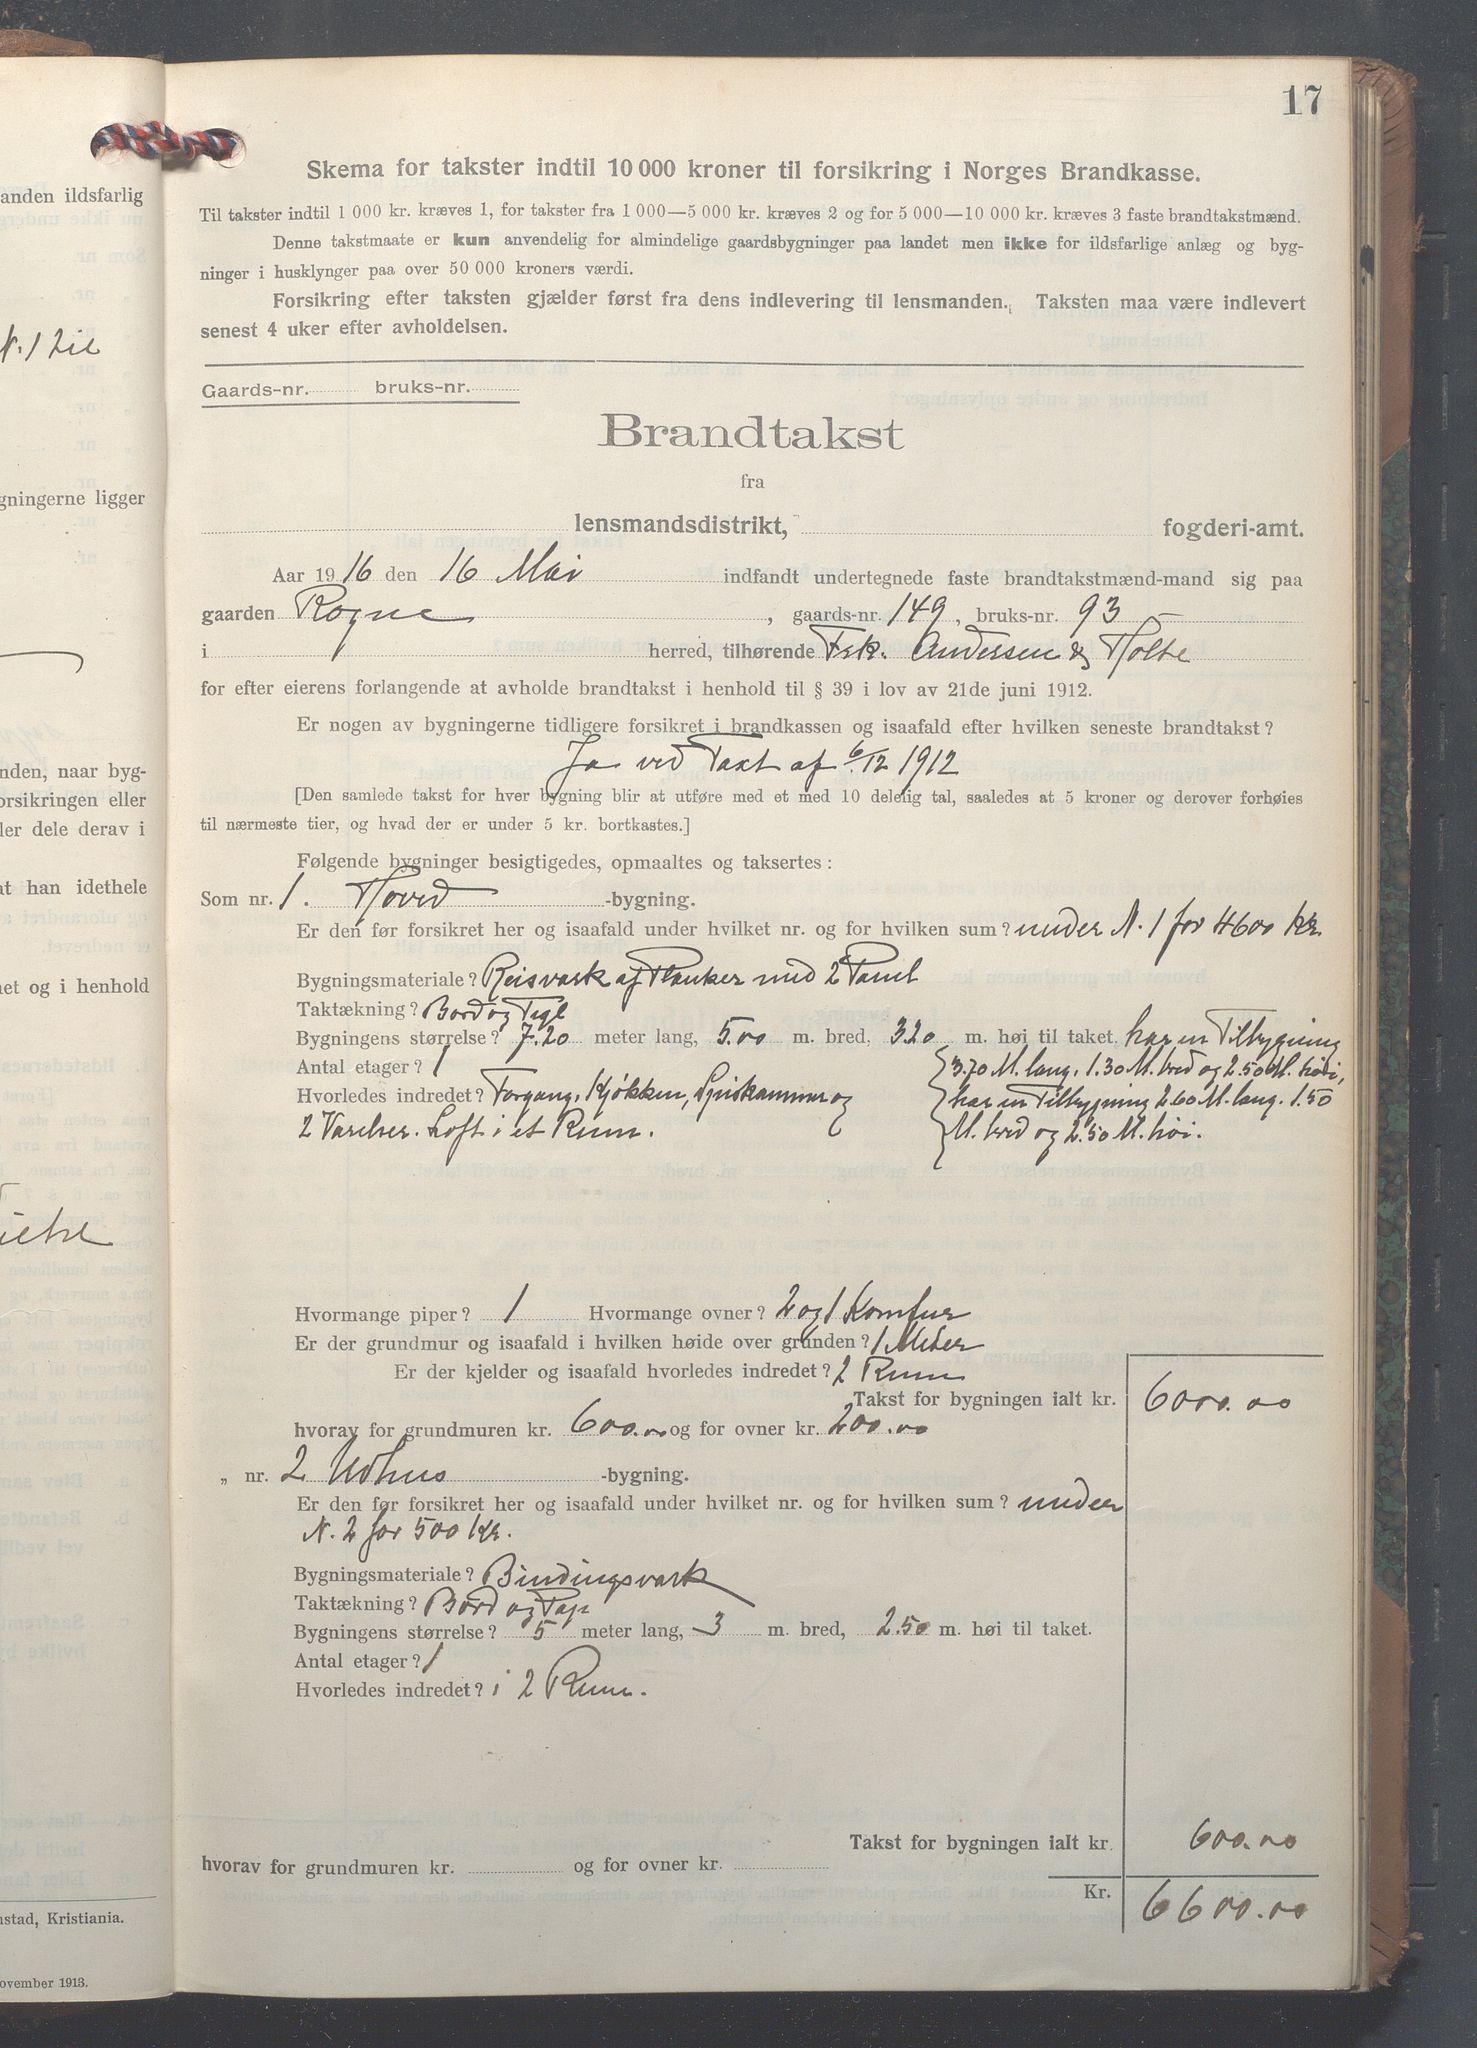 17
Skema for takster indtil 10 000 kroner til forsikring i Norges Brandkasse.
Til takster indtil 1 000 kr. kræves 1, for takster fra 1 000—5 000 kr. kræves 2 og for 5 000—10 000 kr. kræves 3 faste brandtakstmænd.
Denne takstmaate er kun anvendelig for almindelige gaardsbygninger paa landet men ikke for ildsfarlige anlæg og byg-
ninger i husklynger paa over 50 000 kroners værdi.
Forsikring efter taksten gjælder først fra dens indlevering til lensmanden. Taksten maa være indlevert
senest 4 uker efter avholdelsen.
Gaards-nr. bruks-nr.
Brandtakst
fra
lensmandsdistrikt, fogderi-amt.
Aar 1916 den 16 Mai indfandt undertegnede faste brandtakstmænd-mand sig paa
gaarden Rogne, gaards-nr. 149, bruks-nr. 93
i herred, tilhørende Frk. Andersen & Holte
for efter eierens forlangende at avholde brandtakst i henhold til § 39 i lov av 21de juni 1912.
Er nogen av bygningerne tidligere forsikret i brandkassen og isaafald efter hvilken seneste brandtakst?
Ja ved Taxt af 6/12 1912
[Den samlede takst for hver bygning blir at utføre med et med 10 delelig tal, saaledes at 5 kroner og derover forhøies
til nærmeste tier, og hvad der er under 5 kr. bortkastes.]
Følgende bygninger besigtigedes, opmaaltes og taksertes:
Som nr. 1. Hoved -bygning.
Er den før forsikret her og isaafald under hvilket nr. og for hvilken sum? under N. 1 for 4600 kr.
Bygningsmateriale? Reisværk af Planker med 2 Panel
Taktækning? Bord og Tegl
Bygningens størrelse? 7.20 meter lang, 5.00 m. bred, 3.20 m. høi til taket. har en Tilbygning
Antal etager? 1 3.70 M. lang. 1.30 M. bred og 2.50 M. høi,
Hvorledes indredet? Forgang, Kjøkken, Spiskammer og har en Tilbygning 2.60 M. lang. 1.50
2 Værelser. Loft i et Rum. M. bred og 2.50 M. høi.
Hvormange piper? 1 Hvormange ovner? 2 og 1 Komfur
Er der grundmur og isaafald i hvilken høide over grunden? 1 Meter
Er der kjelder og isaafald hvorledes indredet? 2 Rum
Takst for bygningen ialt kr. 6000.00
hvorav for grundmuren kr. 600.00 og for ovner kr. 200.00
„ nr. 2 Udhus -bygning.
Er den før forsikret her og isaafald under hvilket nr. og for hvilken sum? under
N. 2 for 500 Kr.
Bygningsmateriale? Bindingsværk
Taktækning? Bord og Pap
Bygningens størrelse? 5 meter lang, 3 m. bred, 2.50 m. høi til taket.
Antal etager? 1
Hvorledes indredet? i 2 Rum.
Takst for bygningen ialt kr. 600.00
hvorav for grundmuren kr. og for ovner kr.
Kr. 6600.00
anden ildsfarlig
N. 1 til
gningerne ligger
nden, naar byg-
orsikringen eller
ler dele derav i
at han idethele
net og i henhold
nstad, Kristiania.
ovember 1913.